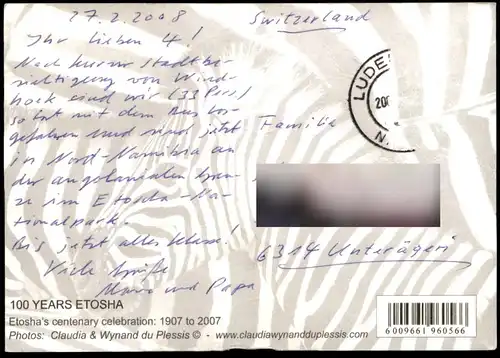 27.2.2008
Ihr lieben 4!
Nach kurzer Stadtbe-
sichtigung von Wind-
hoek sind wir (33 Pers)
sofort mit dem Bus los-
gefahren und sind jetzt
in Nord-Namibia an
der angolanischen Gren-
ze im Etosha-Na-
tionalpark.
Bis jetzt alles klasse!
Viele Grüße
Mama und Papa
100 YEARS ETOSHA
Etosha's centenary celebration: 1907 to 2007
Photos: Claudia & Wynand du Plessis © - www.claudiawynandduplessis.com
Switzerland
LUDE
200
N.
Familie
6314 Unterägeri
6009661 960566